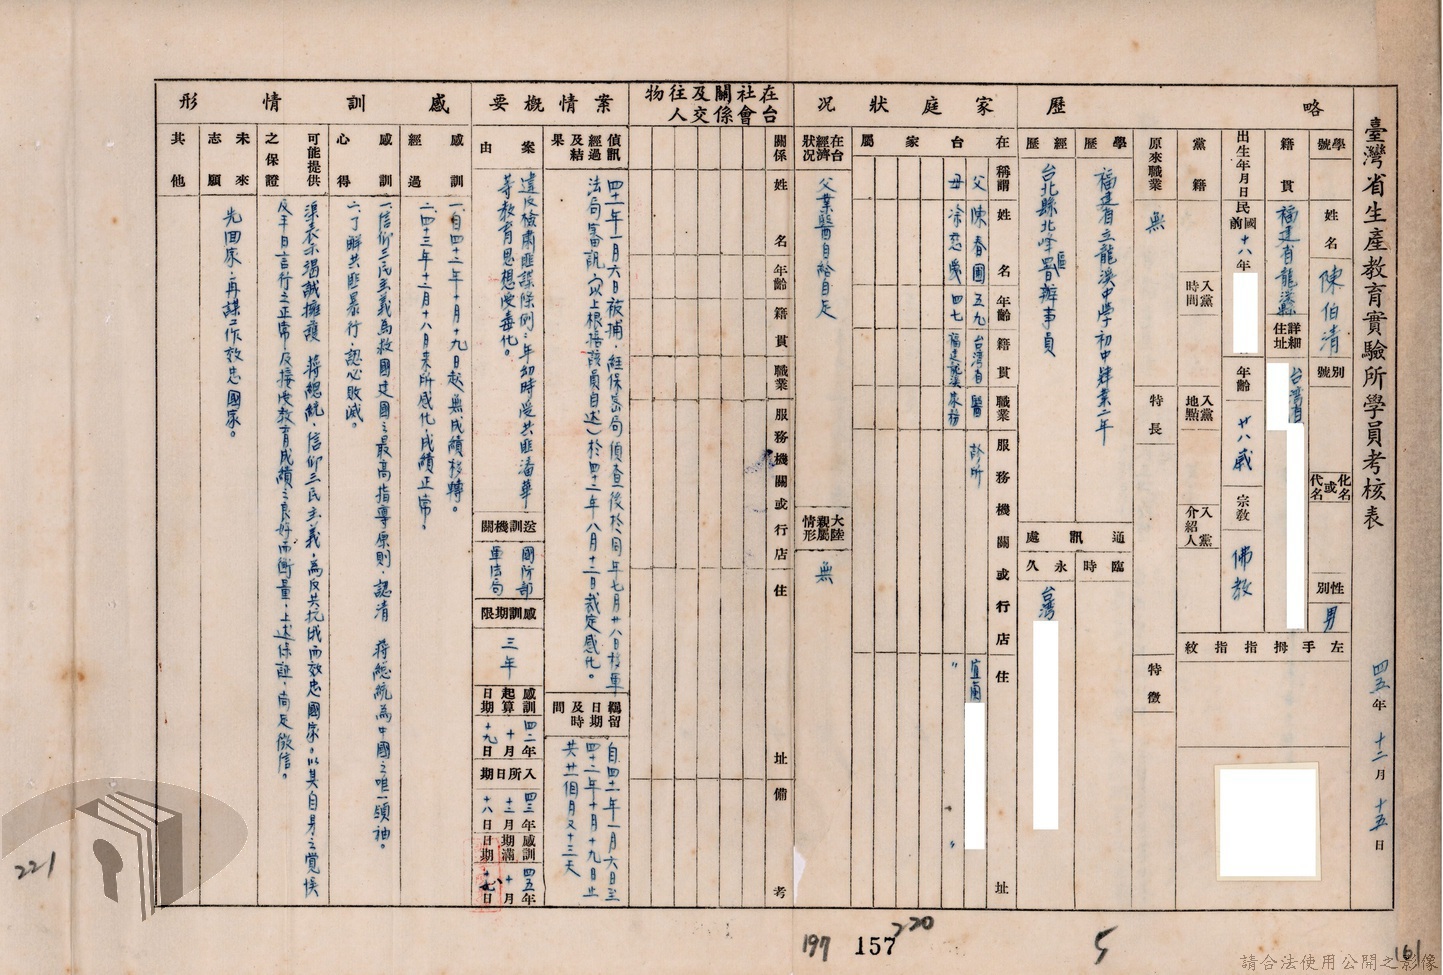 臺灣省生產教育實驗所學員考核表
四五年十二月十五日
略歷
學號
姓名 陳伯清
別號
化名或代名
性別 男
籍貫 福建省龍溪縣
詳細住址 台灣省
出生年月日 民國前十八年
年齡 廿八歲
宗教 佛教
左手拇指指紋
黨籍
入黨時間
入黨地點
入黨介紹人
原來職業 無
特長
特徵
學歷 福建省立龍溪中學初中肄業二年
經歷 台北縣北峰區署辦事員
通訊處
臨時
永久 台灣
家庭狀況
在台家屬
稱謂 姓名 年齡 籍貫 職業 服務機關或行店 住址
父 陳春圃 五九 台灣省 醫 診所 宜蘭
母 涂慈愛 四七 福建龍溪 家務 〃
在台經濟狀況 父業醫自給自足
大陸親屬情形 無
在台社會關係及交往人物
關係 姓名 年齡 籍貫 職業 服務機關或行店 住址 備考
案情概要
偵訊經過及結果 四十一年一月六日被捕,經保密局偵查後於同年七月廿八日移軍
法局審訊(以上根據該員自述)於四十二年八月十二日裁定感化。
羈留日期及時間 自四十一年一月六日至
四十二年十月十九日止
共廿一個月又十三天
案由 違反檢肅匪諜條例:年幼時受共匪潘華
等教育思想受毒化。
送訓機關 國防部
軍法局
感訓期限 三年
感訓起算日期 四二年十月十九日
入所日期 四三年十二月十八日
感訓期滿日期 四五年十月十八日
感訓情形
感訓經過 一、自四十二年十月十九日起無成績移轉。
二、四十三年十二月十八日來所感化,成績正常。
感訓心得 一、信仰三民主義為救國建國之最高指導原則,認清 蔣總統為中國之唯一領袖。
二、了解共匪暴行,認必敗滅。
可能提供之保證 渠表示竭誠擁護 蔣總統,信仰三民主義,為反共抗俄而效忠國家。以其自身之覺悟
及平日言行之正常,及接受教育成績之良好而衡量,上述保証,尚足徵信。
未來志願 先回家,再謀工作效忠國家。
其他
221
197
157
220
5
161
請合法使用公開之影像